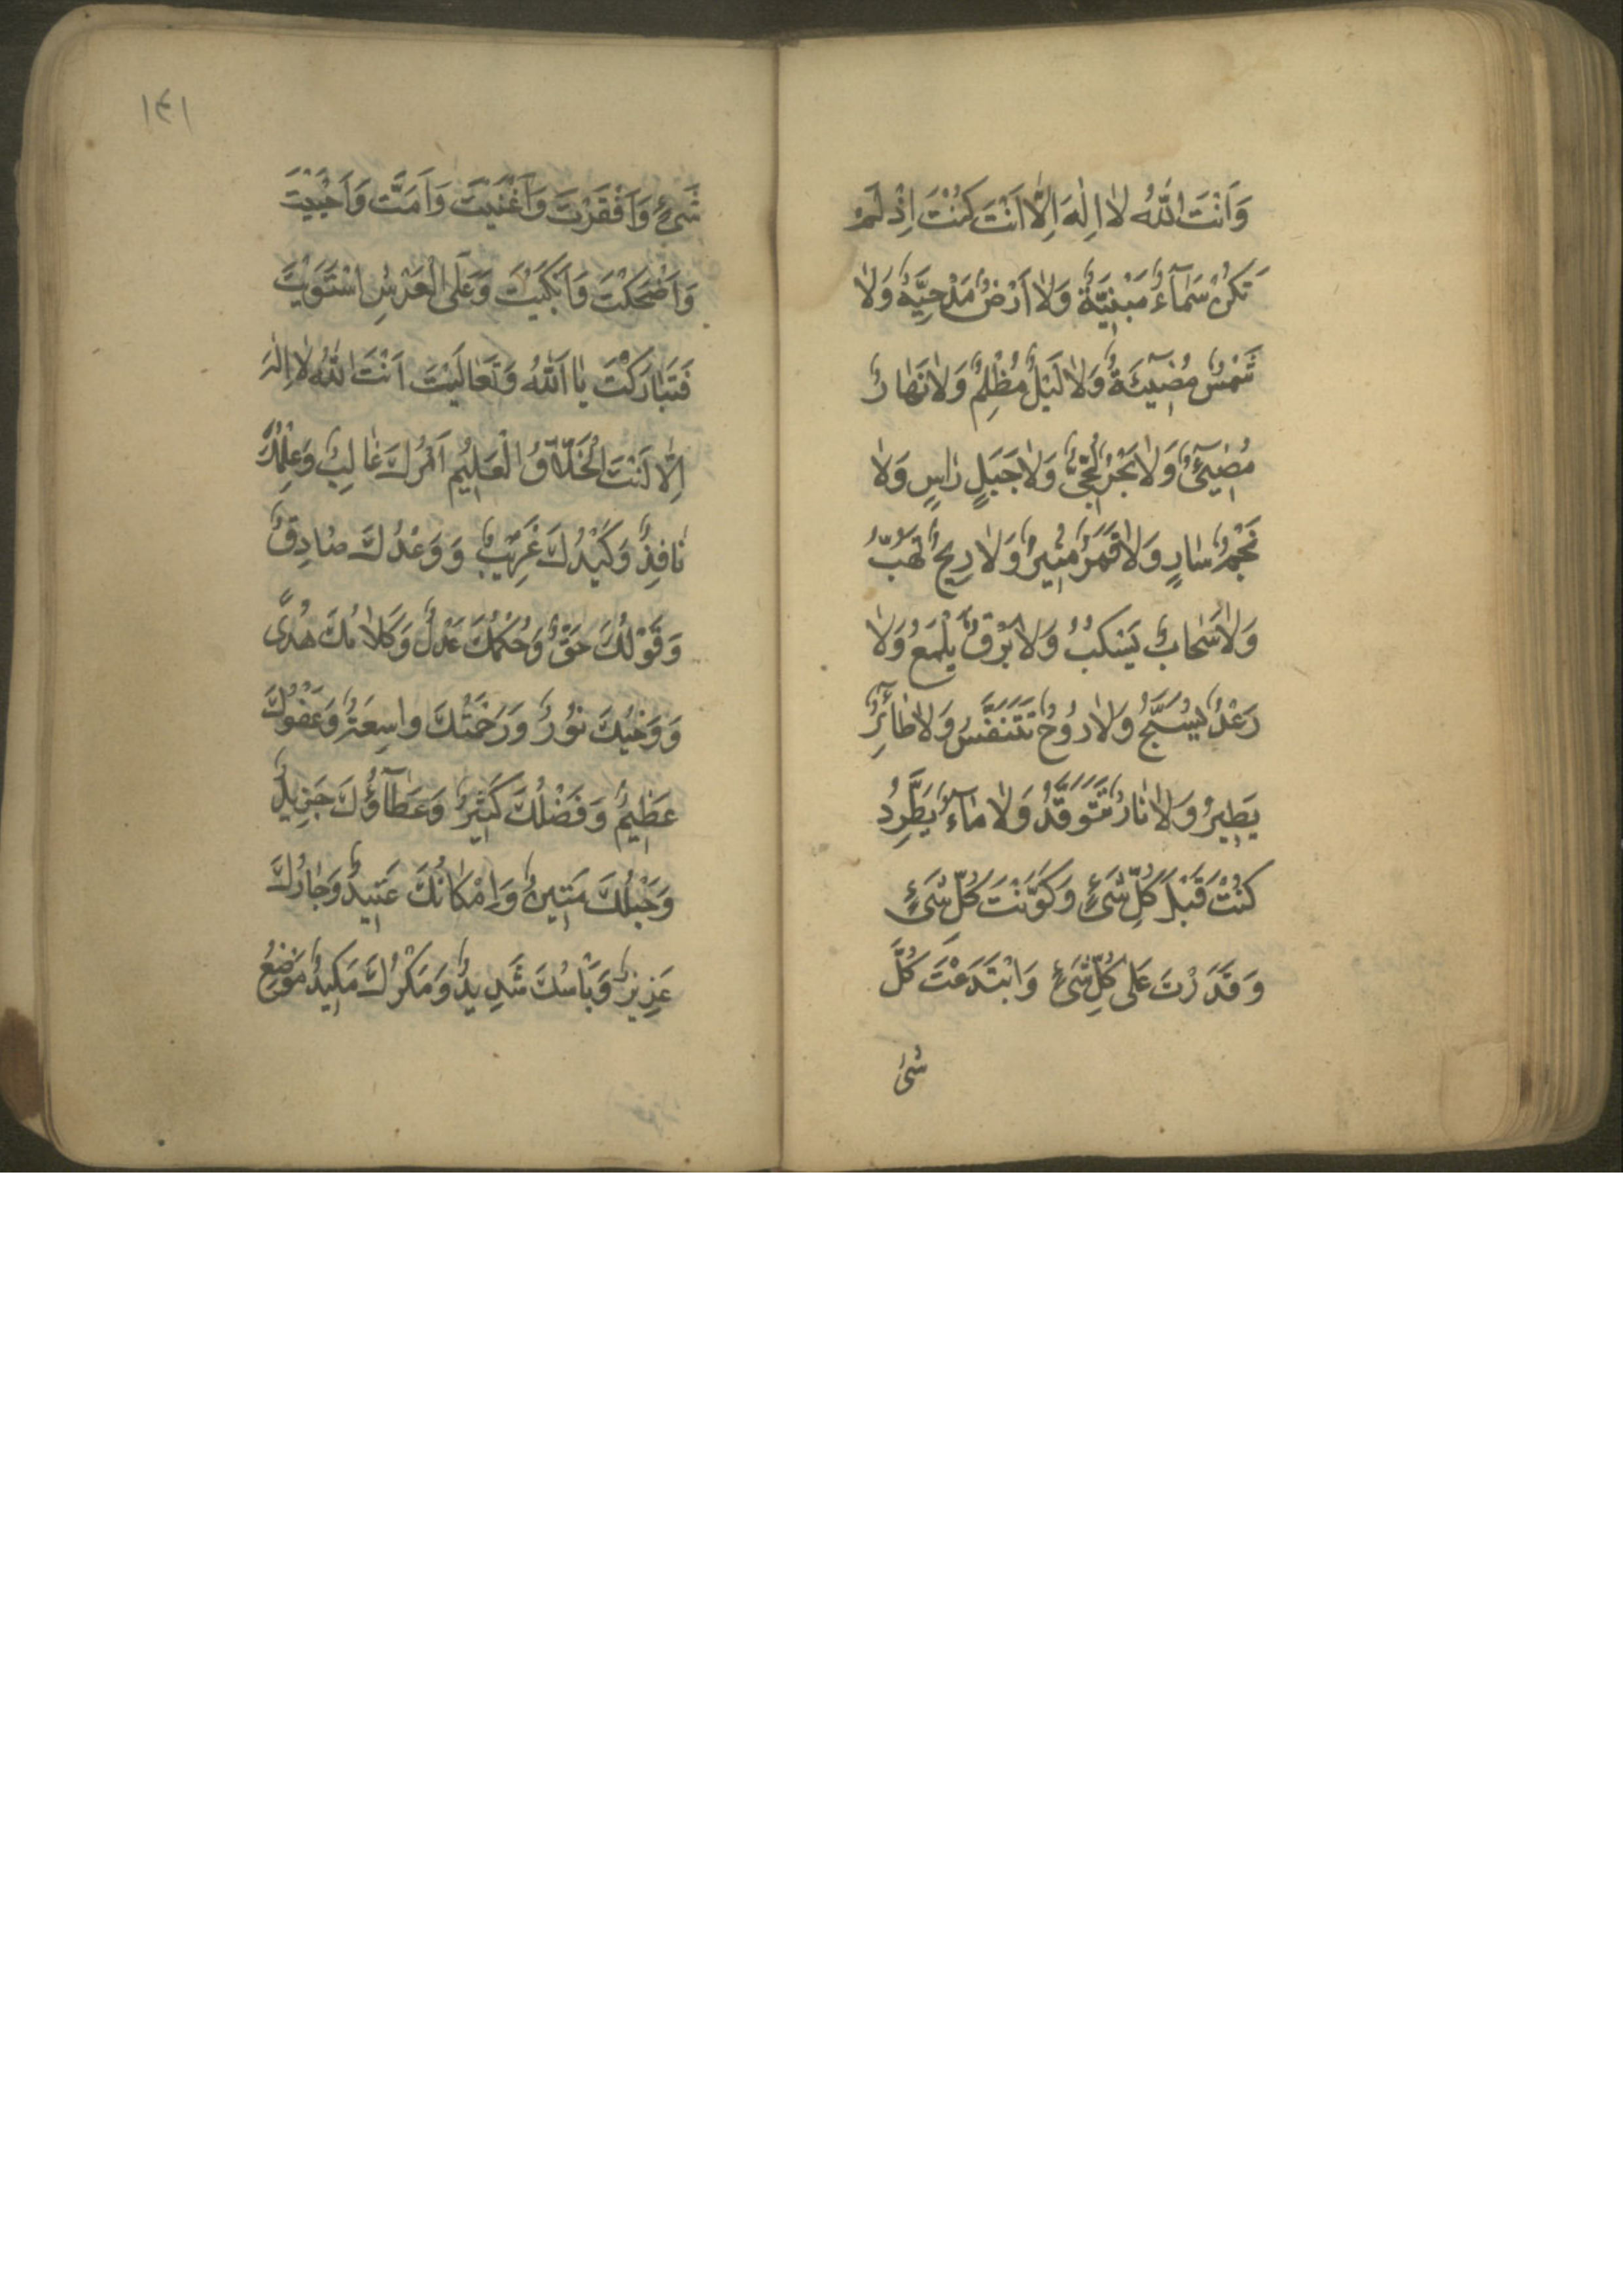 وَاَنْتَ اللّٰهُ لا اِلٰهَ اِلّا اَنْتَ كُنْتَ اِذْ لَمْ
تَكُنْ سَمآءٌ مَبْنِيَّةٌ وَلا اَرْضٌ مَدْحِيَّةٌ وَلا
شَمْسٌ مُضِيۤئَةٌ وَلا لَيْلٌ مُظْلِمٌ وَلا نَهارٌ
مُضِيۤئٌ وَلا بَحْرٌ لُجِّيٌّ وَلا جَبَلٍ راسٍ وَلا
نَجْمٌ سارٍ وَلا قَمَرٌ مُنِيرٌ وَلا رِيحٌ تَهُبُّ
وَلا سَحابٌ يَسْكُبُ وَلا بَرْقٌ يَلْمَعُ وَلا
رَعْدٌ يُسَبِّحُ وَلا رُوحٌ تَتَنَفَّسُ وَلا طآئِرٌ
يَطِيرُ وَلا نارٌ تَتَوَقَّدُ وَلا مآءٌ يَطَّرِدُ
كُنْتَ قَبْلَ كُلِّ شَيْءٍ وَكَوَّنْتَ كُلَّ شَيْءٍ
وَقَدَرْتَ عَلى كُلِّ شَيْءٍ وَابْتَدَعْتَ كُلَّ
شَيْ
١٤١
شَيْءٍ وَاَفْقَرْتَ وَاَغْنَيْتَ وَاَمَتَّ وَاَحْيَيْتَ
وَاَضْحَكْتَ وَاَبْكَيْتَ وَعَلَى الْعَرْشِ اسْتَوَيْتَ
فَتَبارَكْتَ يا اَللّٰهُ وَتَعالَيْتَ اَنْتَ اللّٰهُ لا اِلٰهَ
اِلّا اَنْتَ الْخَلّاقُ الْعَلِيمُ اَمْرُكَ غالِبٌ وَعِلْمُكَ
نافِذٌ وَكَيْدُكَ غَرِيبٌ وَوَعْدُكَ صادِقٌ
وَقَوْلُكَ حَقٌّ وَحُكْمُكَ عَدْلٌ وَكَلامُكَ هُدًى
وَوَحْيُكَ نُورٌ وَرَحْمَتُكَ واسِعَةٌ وَعَفْوُكَ
عَظِيمٌ وَفَضْلُكَ كَثِيرٌ وَعَطآؤُكَ جَزِيلٌ
وَحَبْلُكَ مَتِينٌ وَاِمْكانُكَ عَتِيدٌ وَجارُكَ
عَزِيزٌ وَبَأْسُكَ شَدِيدٌ وَمَكْرُكَ مَكِيدٌ مَوْضِعُ